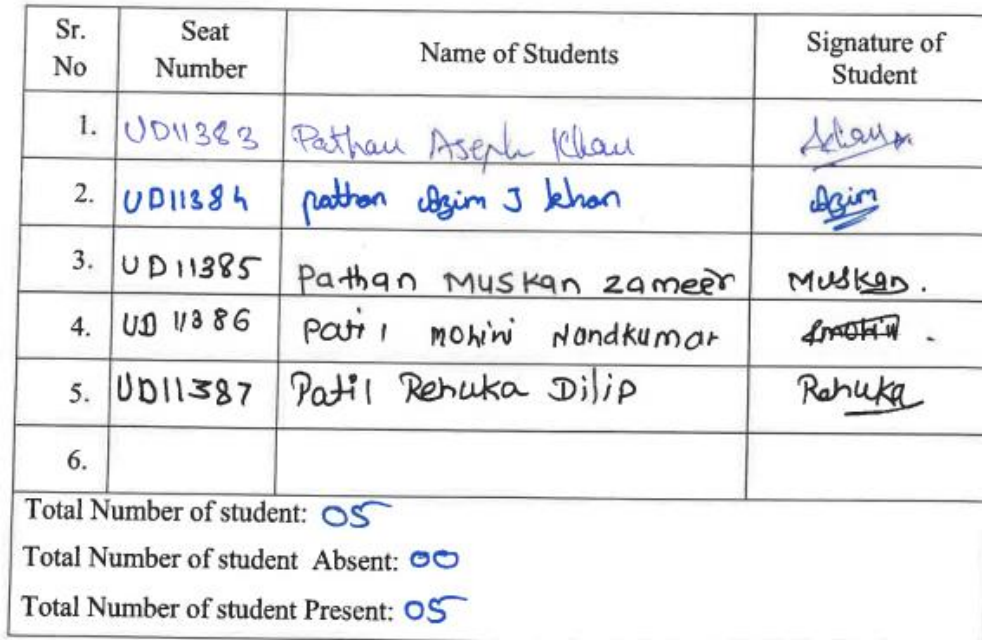 Sr. No Seat Number Name of Students Signature of Student
1. UD11383 Pathan Aseph Khan
2. UD11384 pathan Azim J khan Azim
3. UD11385 Pathan Muskan zameer Muskan.
4. UD 11386 Patil mohini Nandkumar
5. UD11387 Patil Renuka Dilip Renuka
6.
Total Number of student: 05
Total Number of student Absent: 00
Total Number of student Present: 05